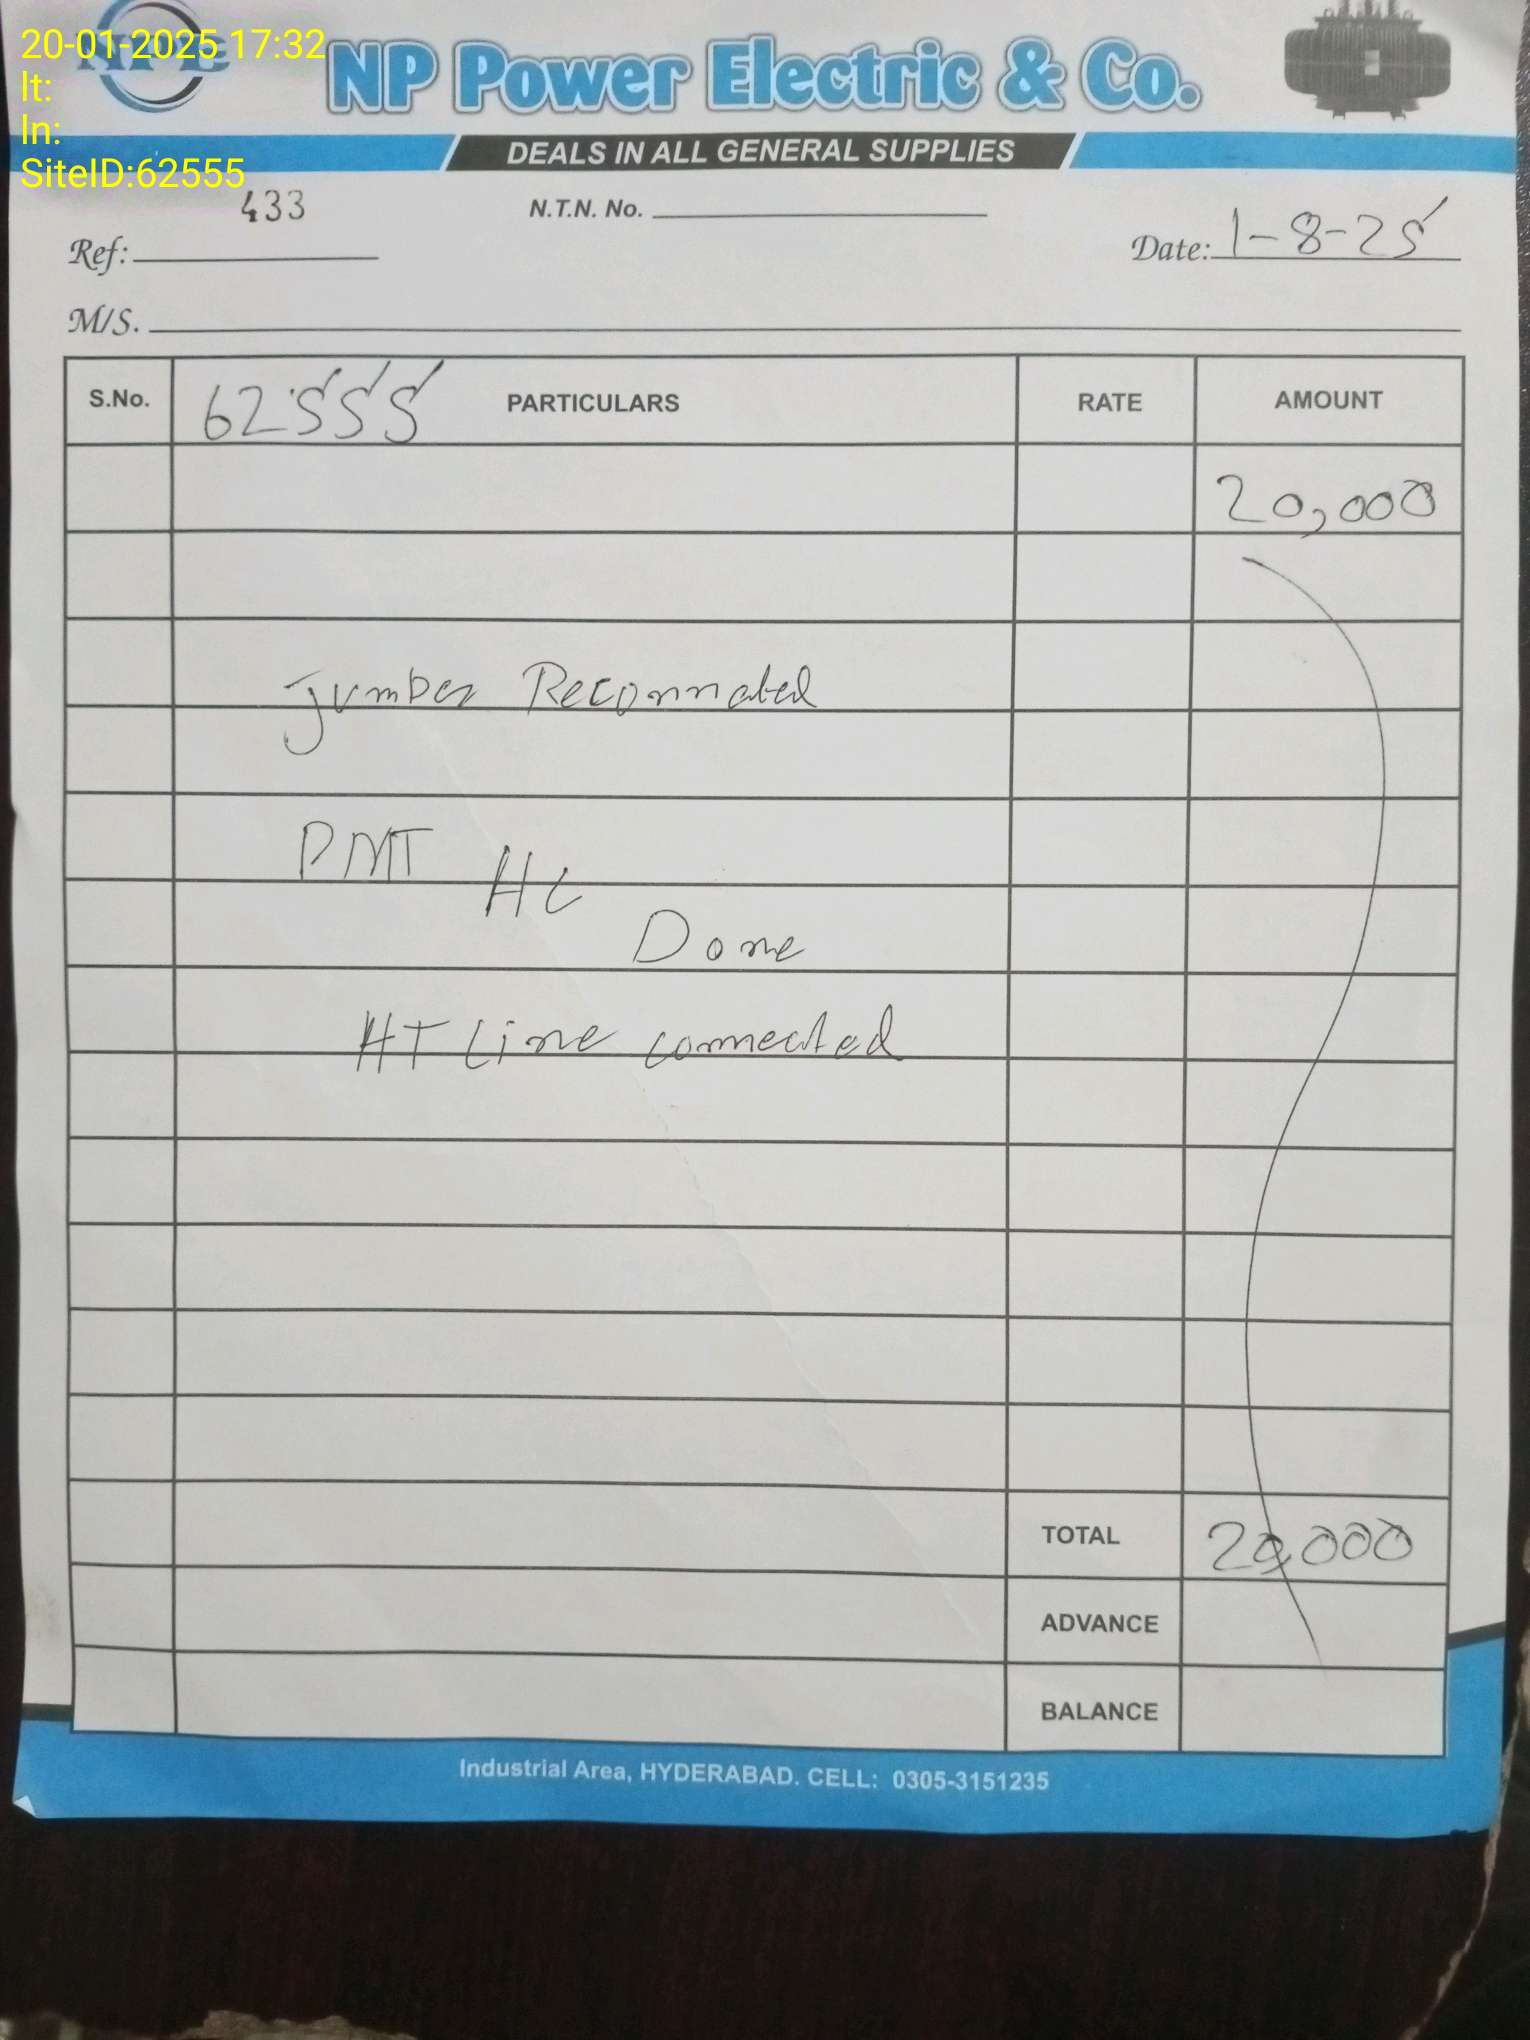 20-01-2025 17:32
lt:
ln:
SiteID:62555
NP Power Electric & Co.
DEALS IN ALL GENERAL SUPPLIES
433
N.T.N. No.
Ref:
Date: 1-8-25
M/S.
S.No. 62555 PARTICULARS RATE AMOUNT
20,000
Jumber Reconnated
PMT HC
Done
HT Line connected
TOTAL 20,000
ADVANCE
BALANCE
Industrial Area, HYDERABAD. CELL: 0305-3151235